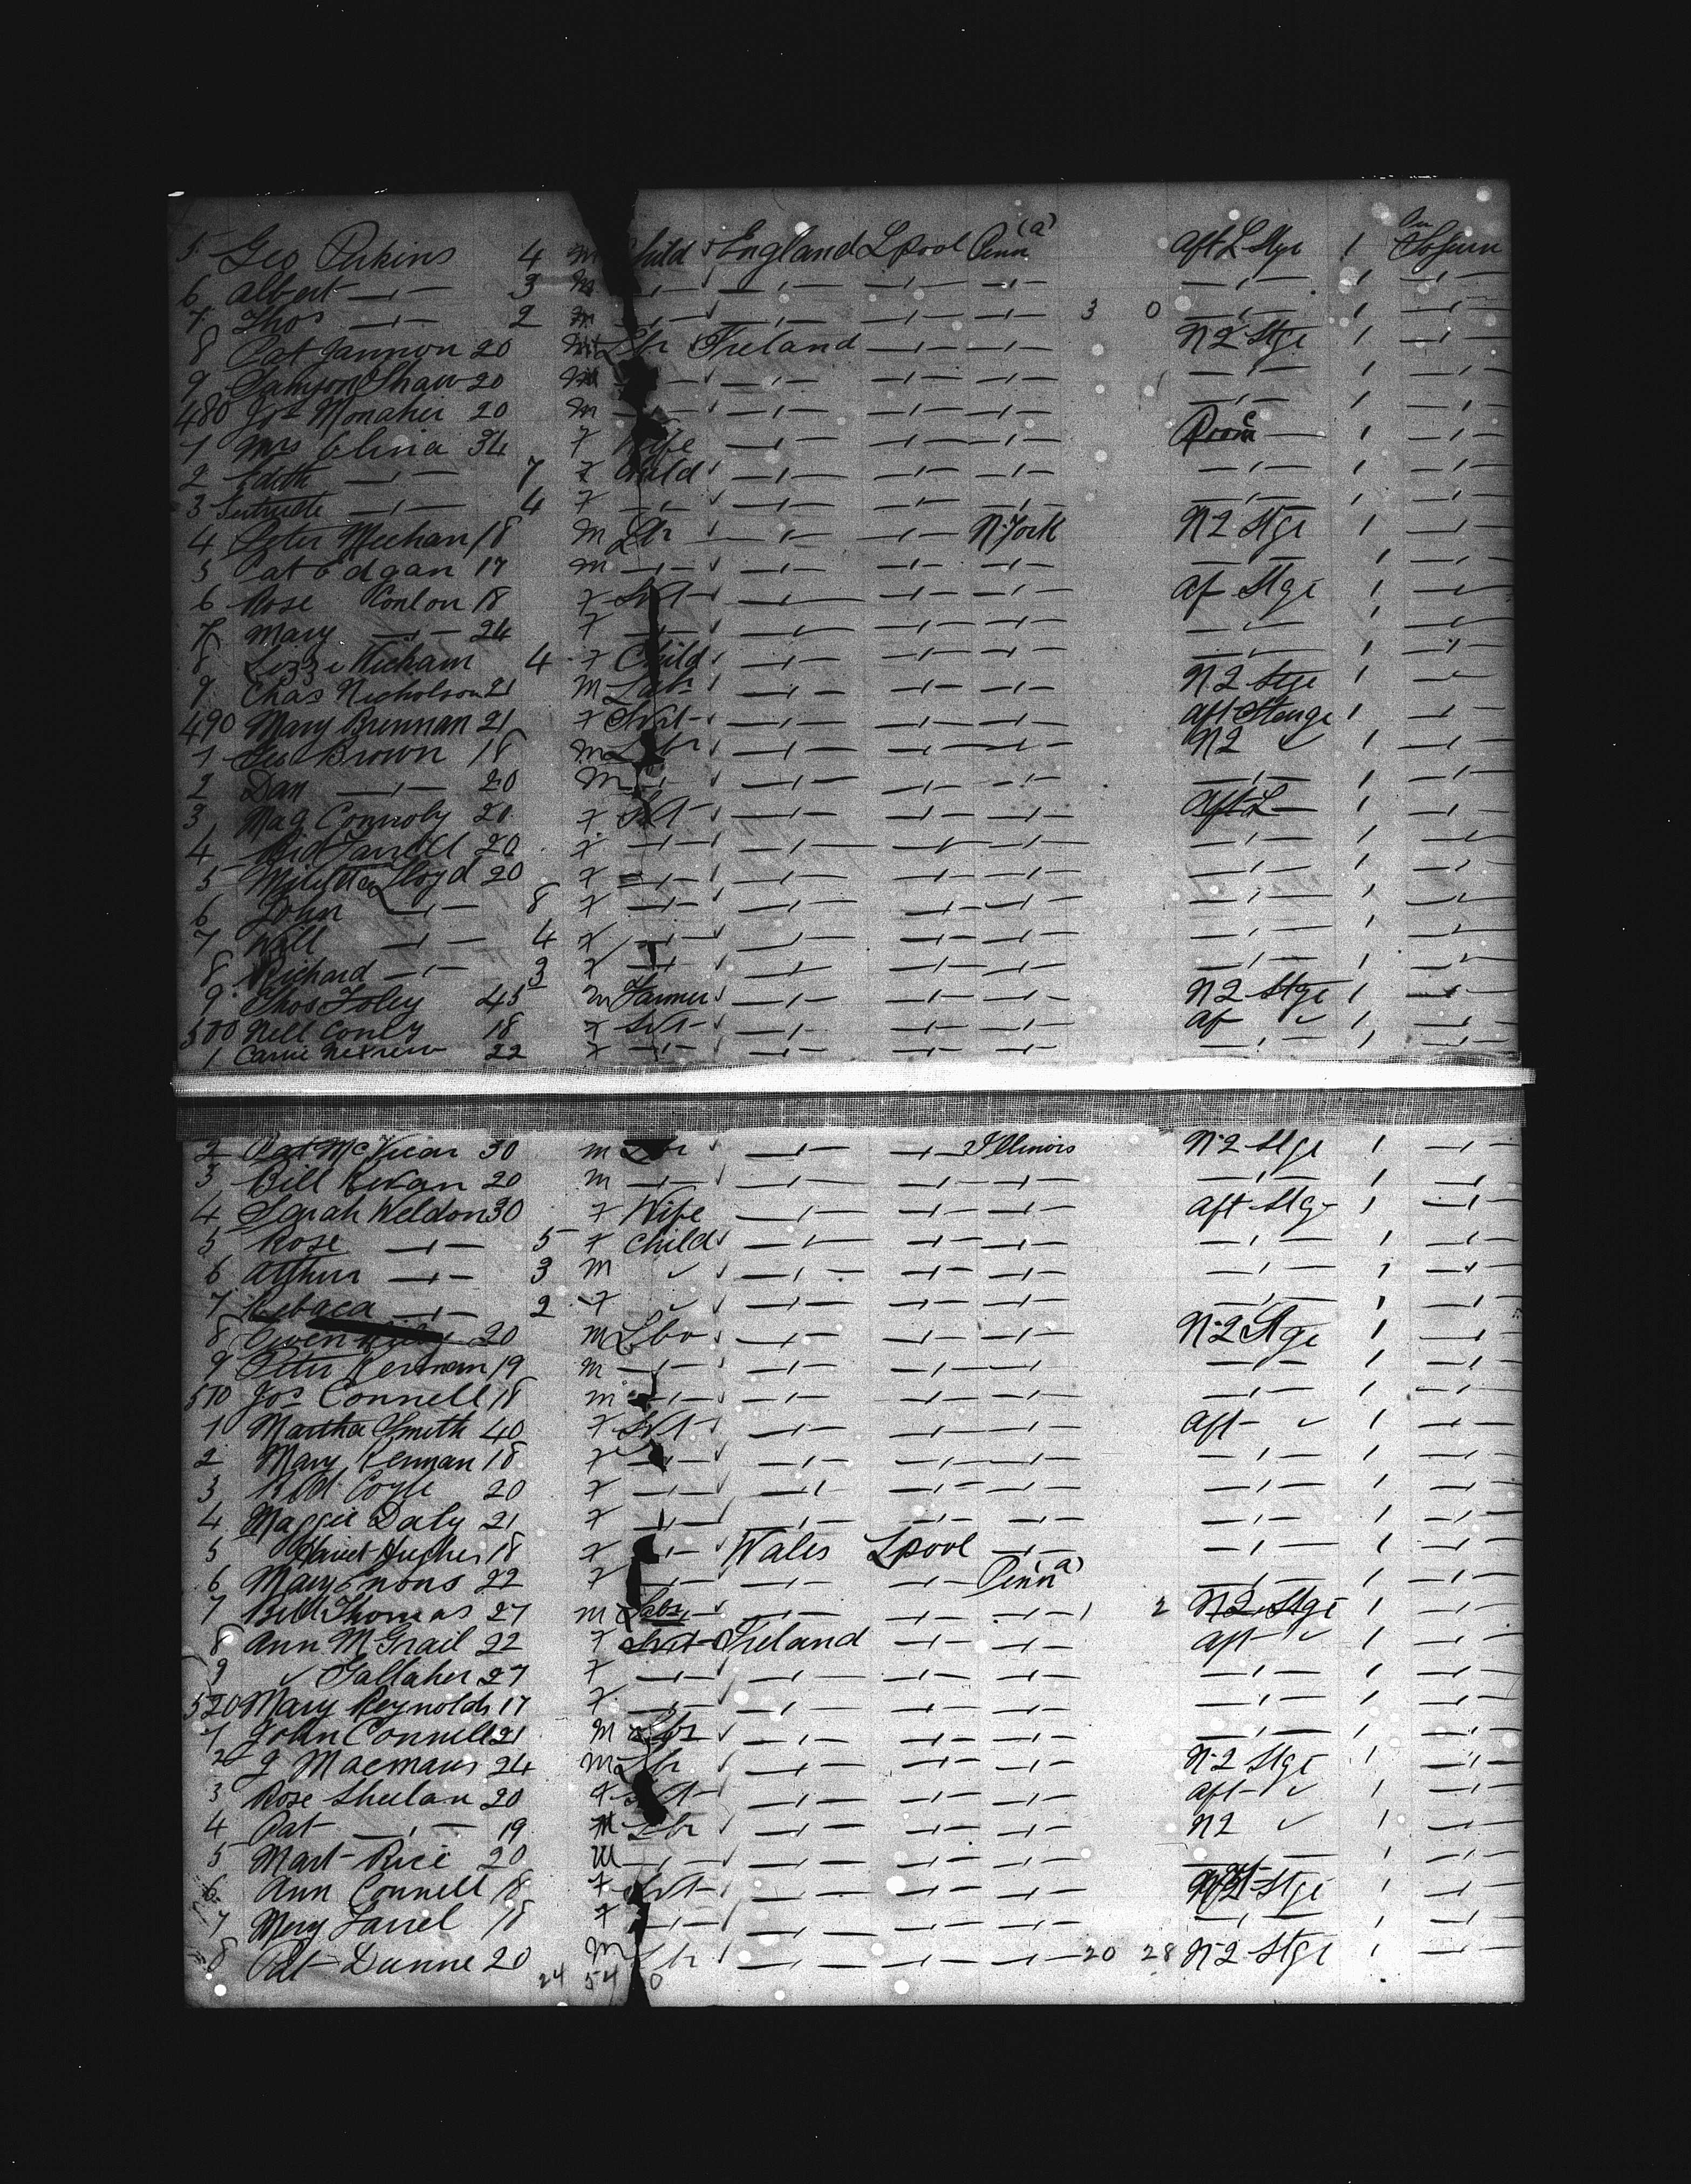 5 Geo Perkins 4 m Child England Lpool Penn (a) Aft L Stge 1
6 Albert —"— 3 m —"— —"— —"— —"— —"— 1 —"—
7 Thos —"— 2 m —"— —"— —"— —"— 3 0 —"— 1 —"—
8 Pat Gannon 20 m Lbr Ireland —"— —"— N2 Stge 1 —"—
9 Samson Shaw 20 m —"— —"— —"— —"— —"— 1 —"—
480 Jos Monaher 20 m —"— —"— —"— —"— —"— 1 —"—
1 Mrs 34 F Wife —"— —"— —"— 1 —"—
2 Edith —"— 7 F Child —"— —"— —"— —"— 1 —"—
3 Gertrude —"— 4 F —"— —"— —"— —"— —"— 1 —"—
4 Peter Meehan 18 m Lbr —"— —"— N York N2 Stge 1 —"—
5 Pat 17 m —"— —"— —"— —"— —"— 1 —"—
6 Rose Conlon 18 F Svt —"— —"— —"— af Stge 1 —"—
7 Mary —"— 24 F —"— —"— —"— —"— —"— 1 —"—
8 Lizzie 4 F Child —"— —"— —"— —"— 1 —"—
9 Chas Nicholson 21 M Labr —"— —"— —"— N2 Stge 1 —"—
490 Mary Brennan 21 F Svt —"— —"— —"— aft Steuge 1 —"—
1 Geo Brown 18 M Lbr —"— —"— —"— N2 ✓ 1 —"—
2 Dan —"— 20 M —"— —"— —"— —"— —"— 1 —"—
3 Mag Connoly 20 F Svt —"— —"— —"— Aft L 1 —"—
4 Bid Farrell 20 F —"— —"— —"— —"— —"— 1 —"—
5 Lloyd 20 F —"— —"— —"— —"— —"— 1 —"—
6 John —"— 8 F —"— —"— —"— —"— —"— 1 —"—
7 Will —"— 4 F —"— —"— —"— —"— —"— 1 —"—
8 Richard —"— 3 F —"— —"— —"— —"— —"— 1 —"—
9 Thos Foley 45 m Farmer —"— —"— —"— N2 Stge 1 —"—
500 Nell Conly 18 F Svt —"— —"— —"— af ✓ 1 —"—
1 Carrie 22 F —"— —"— —"— —"— —"— 1 —"—
2 Pat McVicar 30 m Lbr —"— —"— Illinois N2 Stge 1 —"—
3 Bill 20 m —"— —"— —"— —"— —"— 1 —"—
4 Sarah Weldon 30 F Wife —"— —"— —"— aft Stge 1 —"—
5 Rose —"— 5 F Child —"— —"— —"— —"— 1 —"—
6 Arthur —"— 3 m ✓ —"— —"— —"— —"— 1 —"—
7 Rebaca —"— 2 F ✓ —"— —"— —"— —"— 1 —"—
8 Owen 20 M Lbr —"— —"— —"— N2 Stge 1 —"—
9 Peter Kernan 19 m —"— —"— —"— —"— —"— 1 —"—
510 Jos Connell 18 m —"— —"— —"— —"— —"— 1 —"—
1 Martha Smith 40 F Svt —"— —"— —"— aft ✓ 1 —"—
2 Mary Kernan 18 F —"— —"— —"— —"— —"— 1 —"—
3 Bid Coyle 20 F —"— —"— —"— —"— —"— 1 —"—
4 Maggie Daly 21 F —"— —"— —"— —"— —"— 1 —"—
5 Hughes 18 F —"— Wales Lpool —"— —"— 1 —"—
6 Mary Enons 22 F —"— —"— —"— Penn (a) —"— 1 —"—
7 Bill Thomas 27 m Labr —"— —"— —"— 1 2 N2 Stge 1 —"—
8 Ann McGrail 22 F Svt Ireland —"— —"— aft ✓ 1 —"—
9 ✓ Gallaher 27 F —"— —"— —"— —"— —"— 1 —"—
520 Mary Reynolds 17 F —"— —"— —"— —"— —"— 1 —"—
1 John Connell 21 M Lbr —"— —"— —"— —"— 1 —"—
2 J Macmaus 24 M Lbr —"— —"— —"— N2 Stge 1 —"—
3 Rose Sheelan 20 F Svt —"— —"— —"— aft ✓ 1 —"—
4 Pat —"— 19 M Lbr —"— —"— —"— N2 ✓ 1 —"—
5 Mart Rice 20 M —"— —"— —"— —"— —"— 1 —"—
6 Ann Connell 18 F Svt —"— —"— —"— aft Stge 1 —"—
7 Mery Farrel 18 F —"— —"— —"— —"— —"— 1 —"—
8 Pat Dunne 20 M Lbr —"— —"— —"— 20 28 N2 Stge 1 —"—
24 54 0